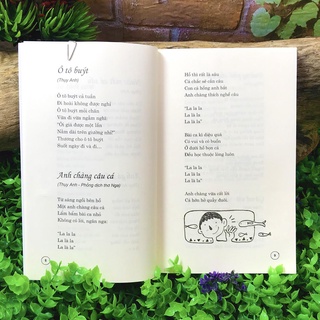 Ô tô buýt
(Thụy Anh)
Ô tô buýt cả tuần
Đi hoài không được nghỉ
Ô tô buýt chắc mỏi
Vẫn đi vẫn ngẫm nghĩ:
"Ôi giá được một lần
Nằm dài trên giường nhỉ!"
Thương cho ô tô buýt
Suốt ngày đi và đi...
Anh chàng câu cá
(Thụy Anh - Phỏng dịch thơ Nga)
Từ sáng ngồi bên hồ
Một anh chàng câu cá
Lẩm nhẩm bài ca nhỏ
Không có lời, ngân nga:
"La la la
La là la
La là la"
8
Hồ thì rất là sâu
Cá chắc sẽ cắn câu
Con cá hồng anh bắt
Anh chàng thích nghề câu
"La la la
La là la
La là la"
Bài ca kì diệu quá
Có vui và có buồn
Ở dưới hồ bọn cá
Đều học thuộc lòng luôn
"La la la
La là la
La là la"
Anh chàng vừa cất lời
Cá bên hồ quẫy đuôi
9